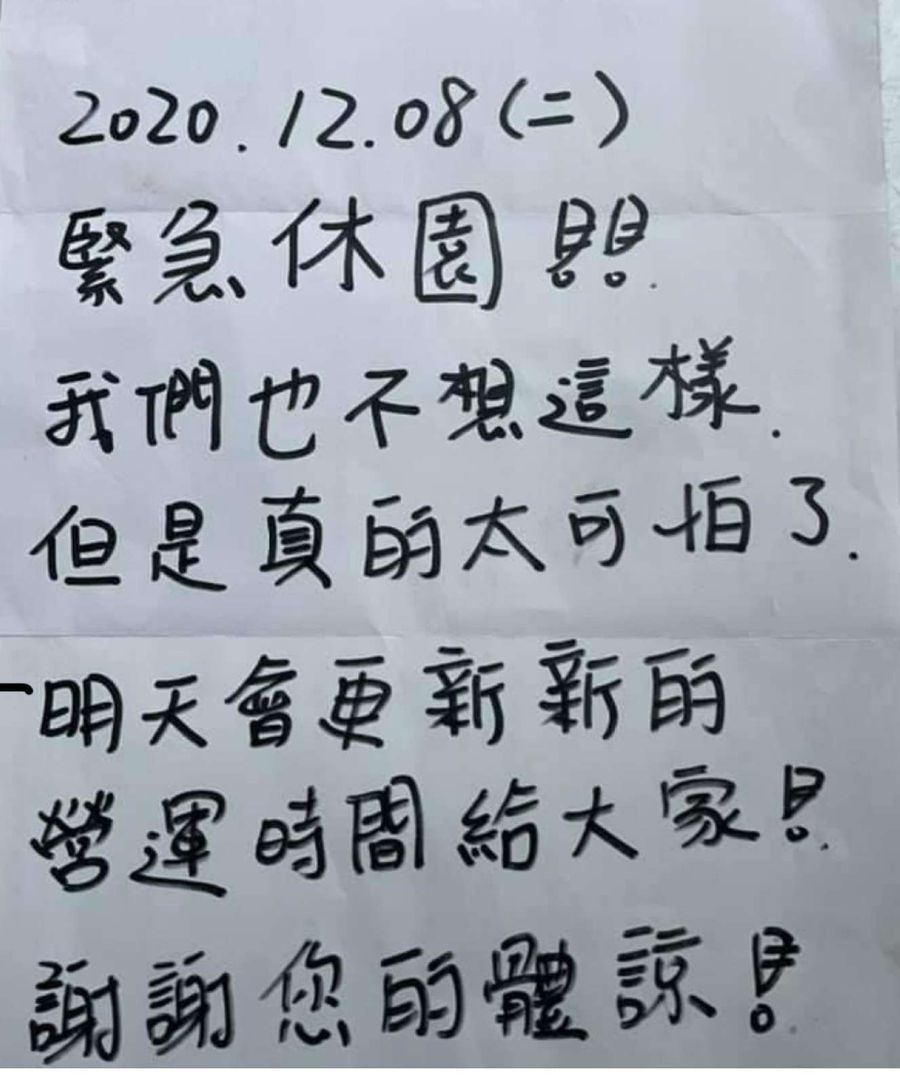 2020.12.08(二)
緊急休園!!.
我們也不想這樣.
但是真的太可怕了.
明天會更新新的
營運時間給大家!.
謝謝您的體諒!.